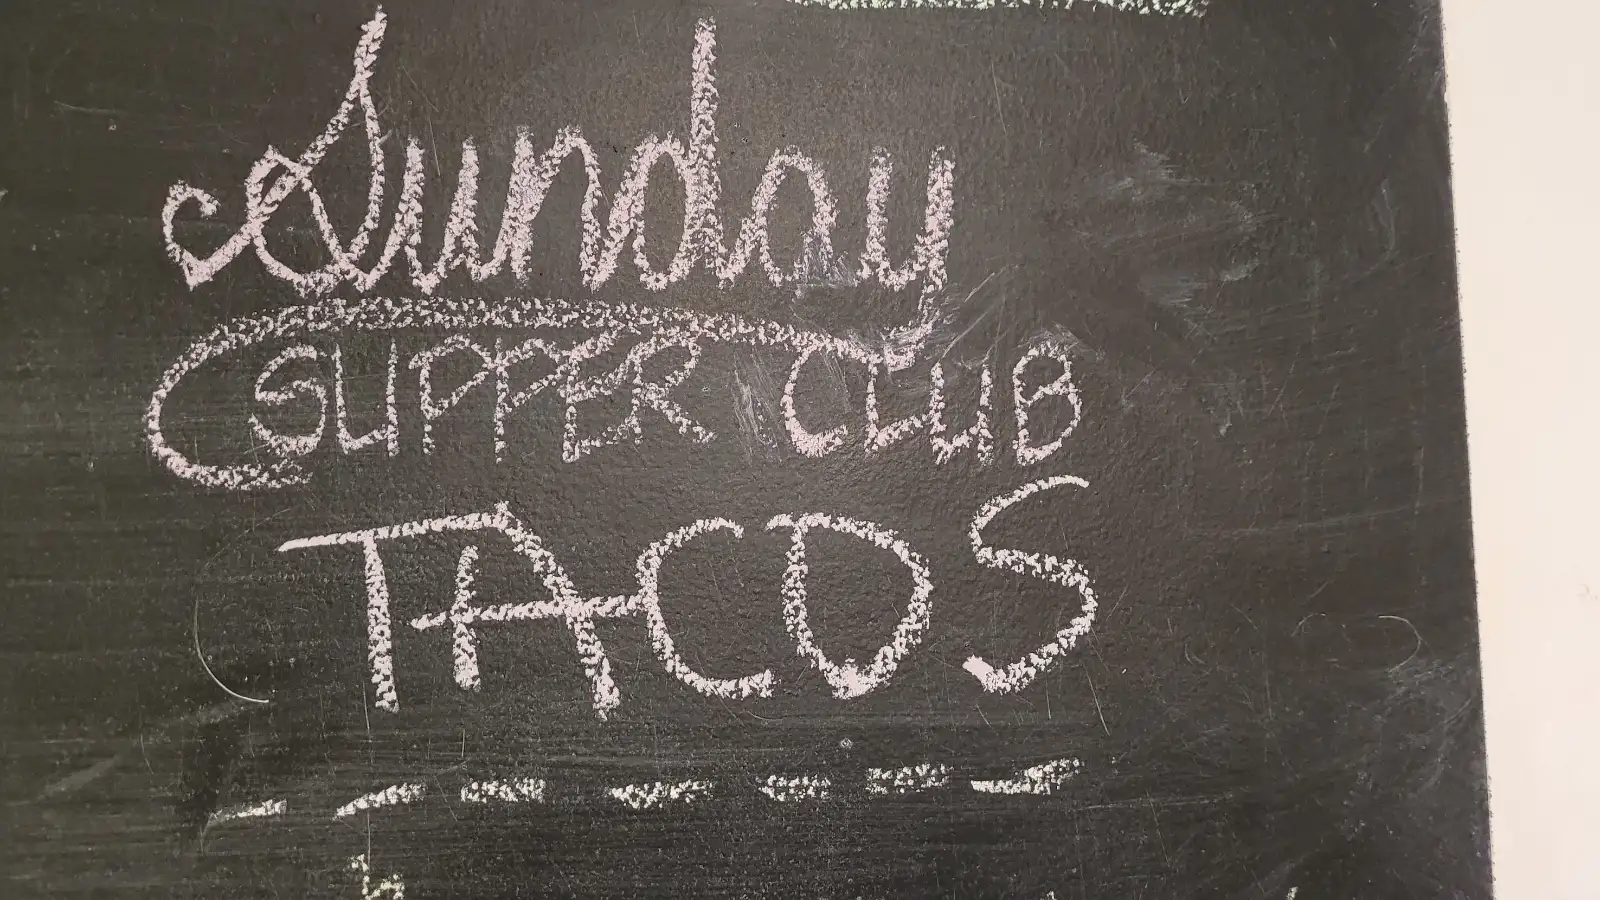 Sunday
SUPPER CLUB
TACOS